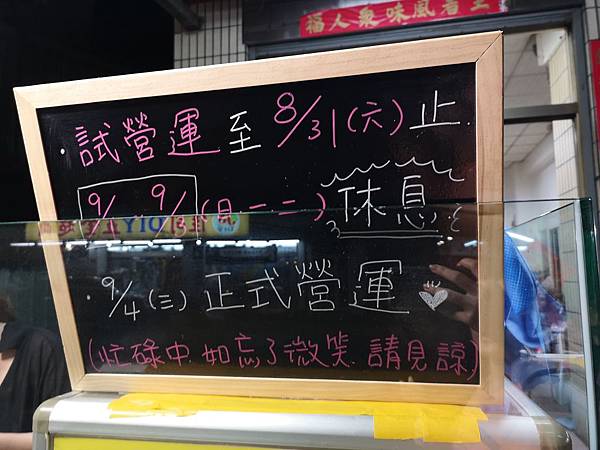 王者風味衆人福
·試營運至 8/31(六)止.
9/1 9/3(日一二)休息
·9/4(三)正式營運
(忙碌中.如忘了微笑.請見諒)